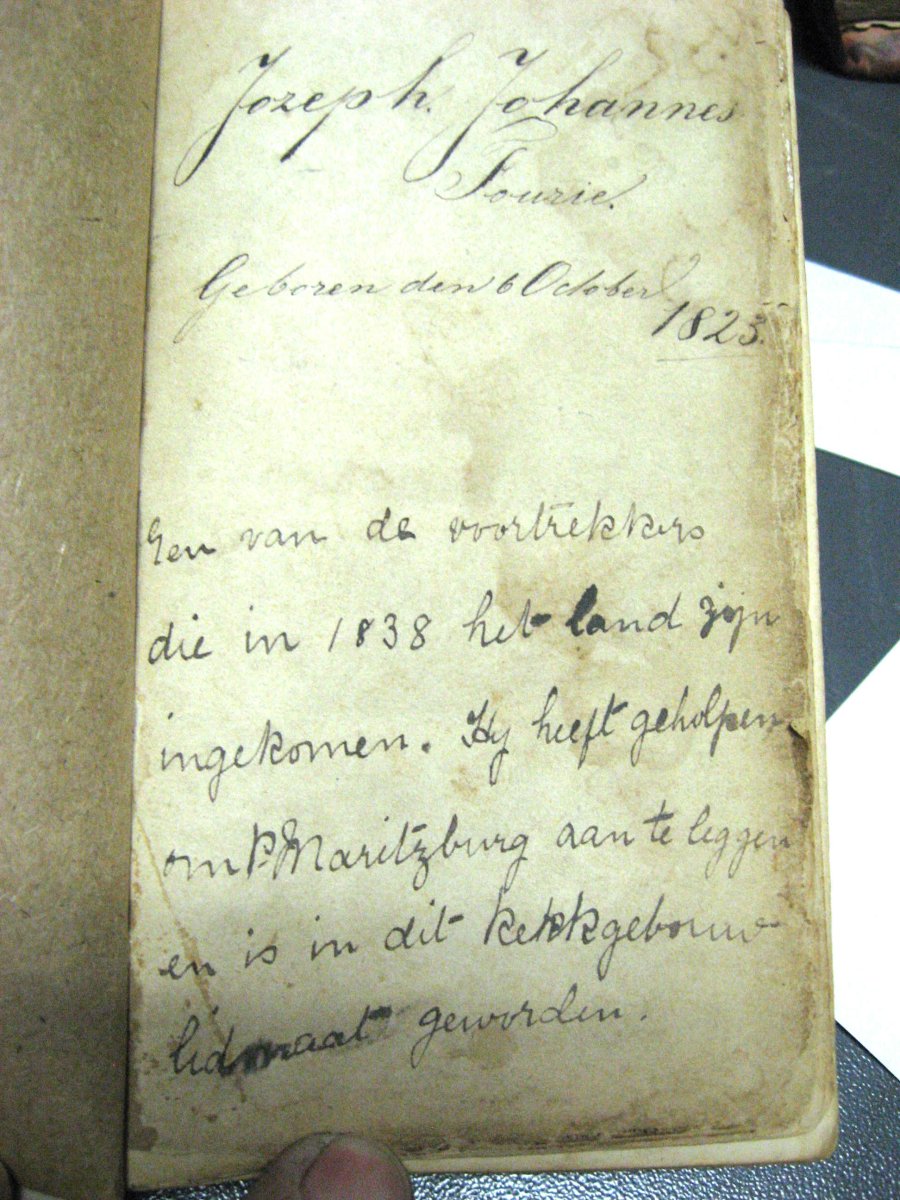 Jozeph Johannes
Fourie.
Geboren den 6 October
1825.
Een van de voortrekkers
die in 1838 het land zijn
ingekomen. Hij heeft geholpen
om P. Maritzburg aan te leggen
en is in dit kekkgebouw
lidmaat geworden.